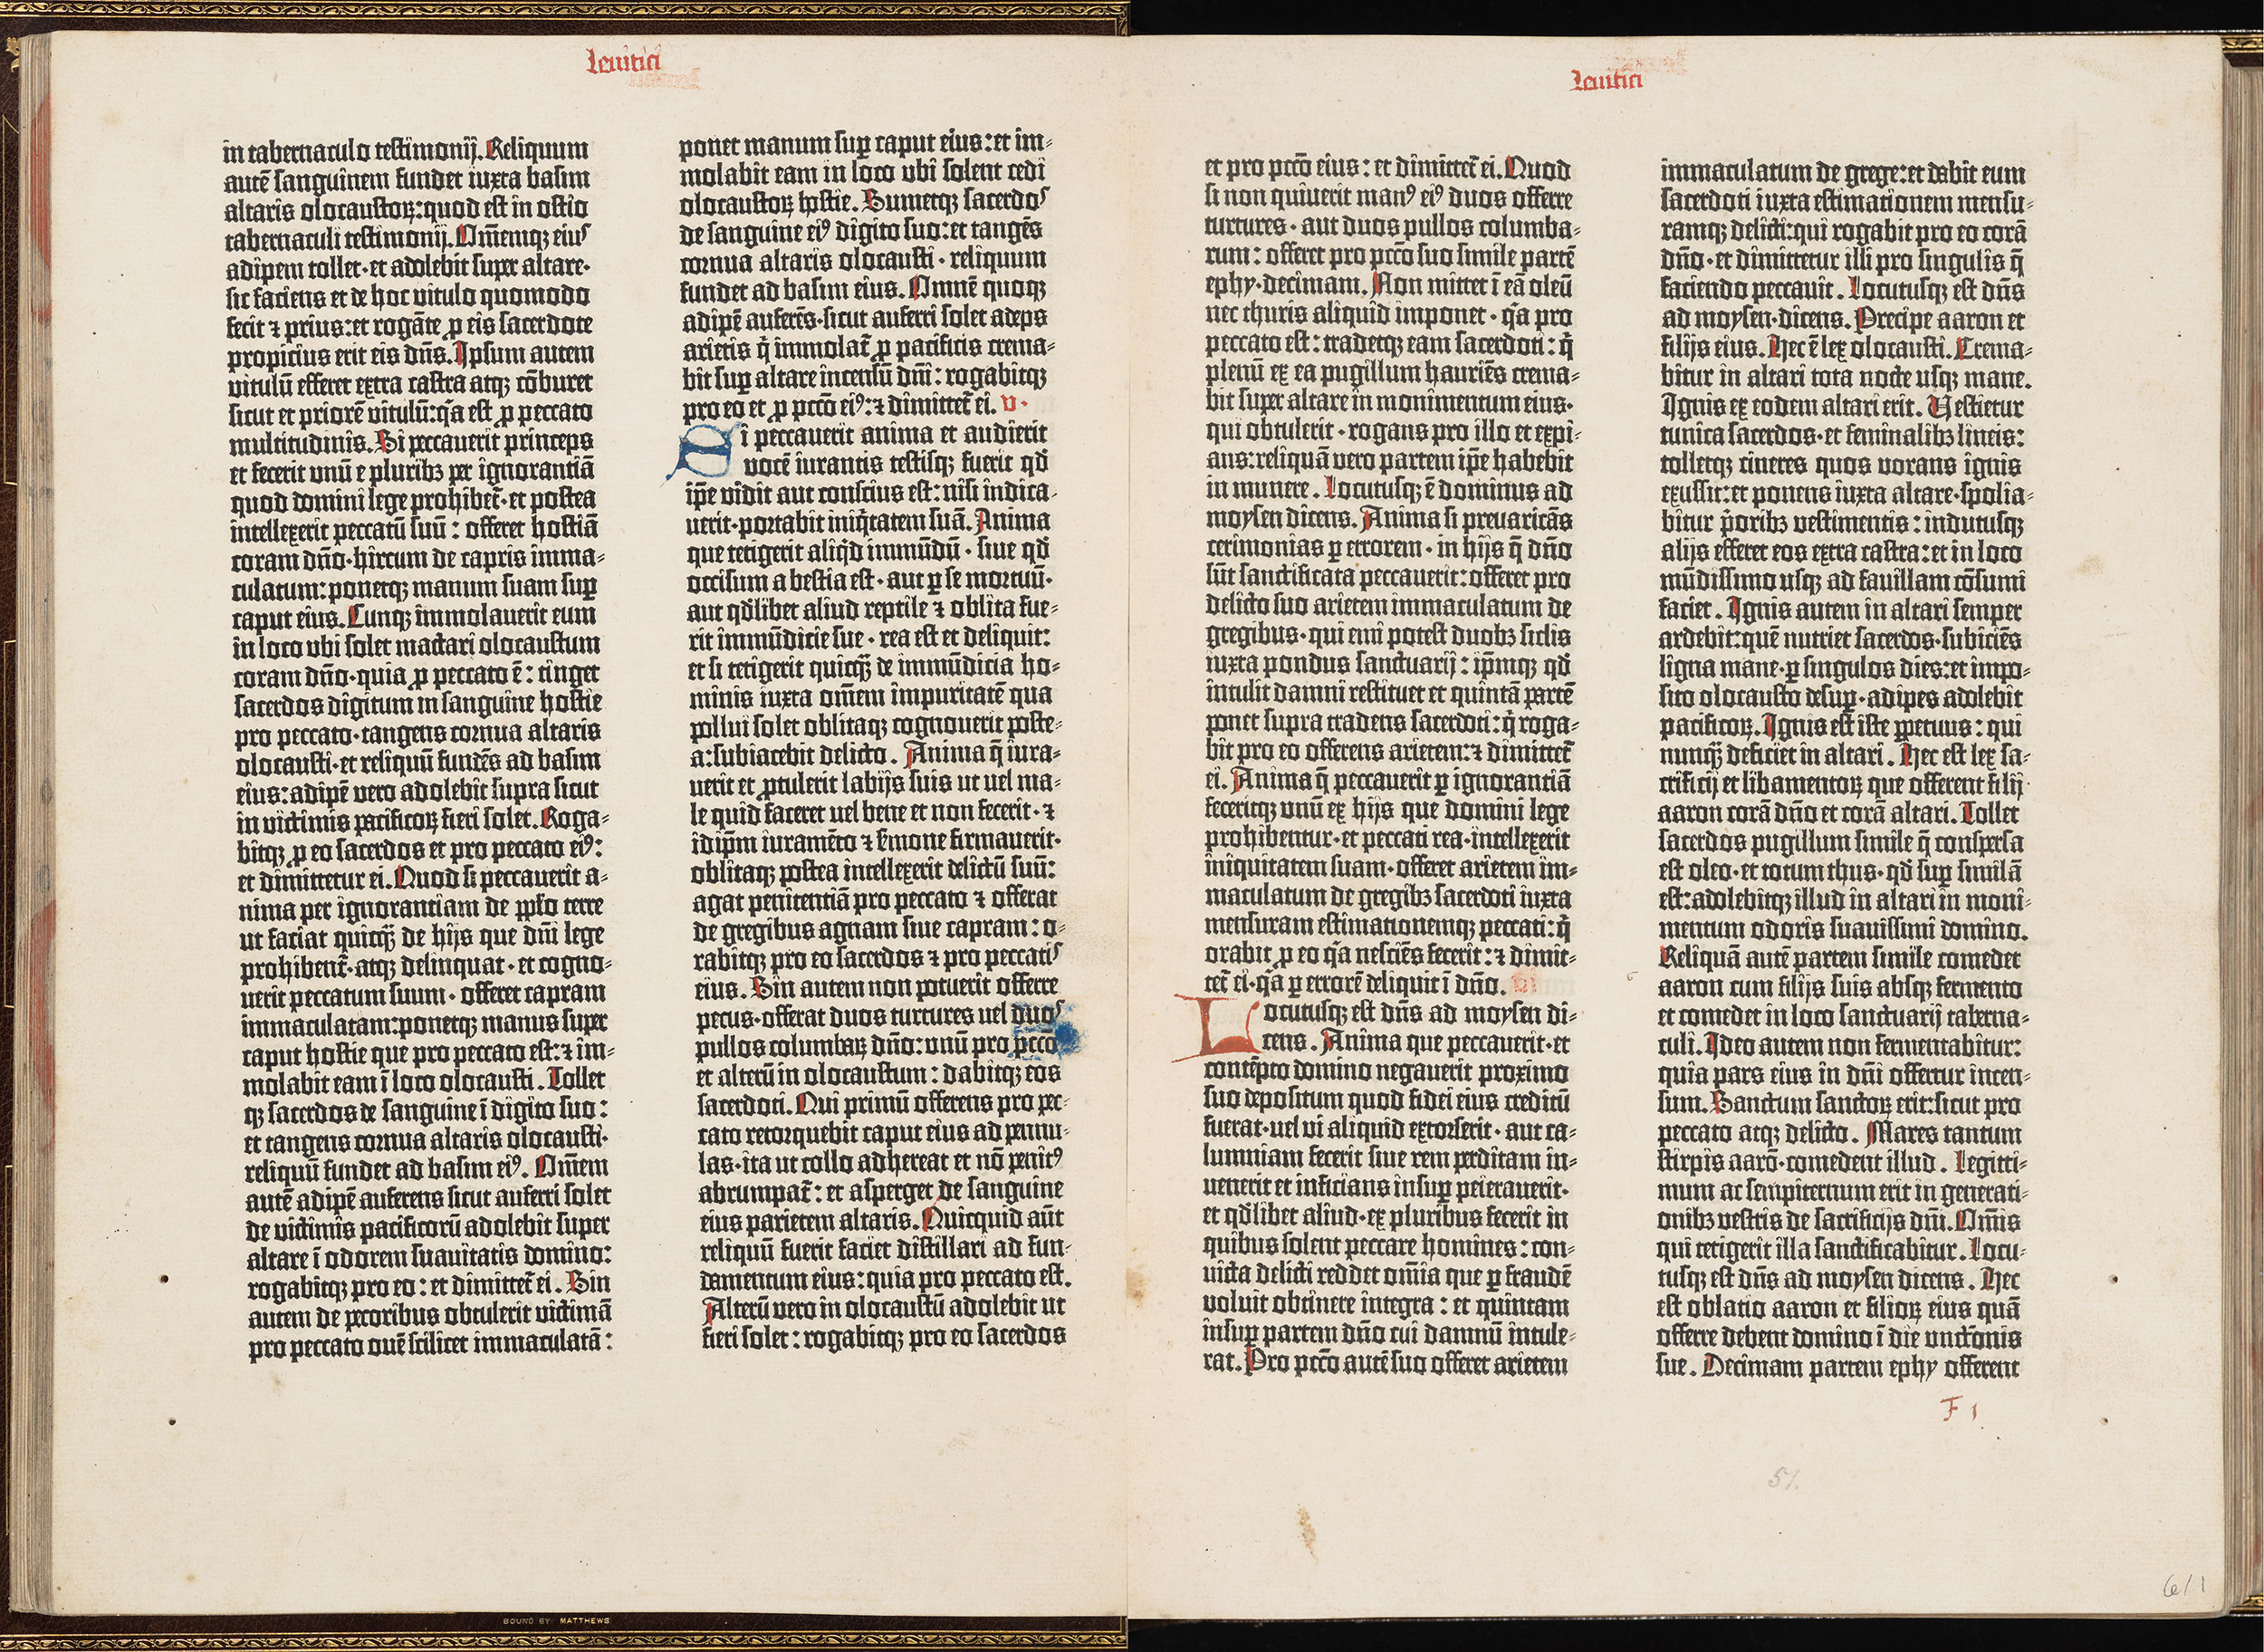 Leuitici
in tabernaculo testimonij. Reliquum
autē sanguinem fundet iuxta basim
altaris olocaustoꝝ: quod est in ostio
tabernaculi testimonij. Om̄emqꝫ eius
adipem tollet· et adolebit super altare·
sic faciens et de hoc vitulo quomodo
fecit ⁊ prius: et rogāte ꝓ eis sacerdote
propicius erit eis dn̄s. Ipsum autem
vitulū efferet extra castra atqꝫ cōburet
sicut et priorē vitulū: qͣa est ꝓ peccato
multitudinis. Si peccauerit princeps
et fecerit unū e pluribꝫ per ignorantiā
quod domini lege prohibet̄· et postea
intellexerit peccatū suū: offeret hostiā
coram dn̄o· hircum de capris imma⸗
culatum: ponetqꝫ manum suam suꝑ
caput eius. Cunqꝫ immolauerit eum
in loco vbi solet mactari olocaustum
coram dn̄o· quia ꝓ peccato ē: tinget
sacerdos digitum in sanguine hostie
pro peccato· tangens cornua altaris
olocausti· et reliquū fundēs ad basim
eius: adipē vero adolebit supra sicut
in victimis pacificoꝝ fieri solet. Roga⸗
bitqꝫ ꝓ eo sacerdos et pro peccato eiꝰ:
et dimittetur ei. Quod si peccauerit a⸗
nima per ignorantiam de pp̄lo terre
ut faciat quicqꝫ̄ de hijs que dn̄i lege
prohibent̄· atqꝫ delinquat· et cogno⸗
uerit peccatum suum· offeret capram
immaculatam: ponetqꝫ manus super
caput hostie que pro peccato est: ⁊ im⸗
molabit eam ī loco olocausti. Tollet
qꝫ sacerdos de sanguine ī digito suo:
et tangens cornua altaris olocausti·
reliquū fundet ad basim eiꝰ. Om̄em
autē adipē auferens sicut auferri solet
de victimis pacificorū adolebit super
altare ī odorem suauitatis domino:
rogabitqꝫ pro eo: et dimittet̄ ei. Sin
autem de pecoribus obtulerit victimā
pro peccato ouē scilicet immaculatā:
ponet manum suꝑ caput eius: et im⸗
molabit eam in loco vbi solent cedi
olocaustoꝝ hostie. Sumetqꝫ sacerdos
de sanguine eiꝰ digito suo: et tangēs
cornua altaris olocausti· reliquum
fundet ad basim eius. Omnē quoqꝫ
adipē auferēs· sicut auferri solet adeps
arietis q̄ immolat̄ ꝓ pacificis crema⸗
bit suꝑ altare incensū dn̄i: rogabitqꝫ
pro eo et ꝓ pcc̄o eiꝰ: ⁊ dimittet̄ ei. v·
Si peccauerit anima et audierit
vocē iurantis testisqꝫ fuerit qd̄
ip̄e vidit aut conscius est: nisi indica⸗
uerit· portabit iniqͥtatem suā. Anima
que tetigerit aliqͥd immūdū· siue qd̄
occisum a bestia est· aut ꝑ se mortuū·
aut qd̄libet aliud reptile ⁊ oblita fue⸗
rit immūdicie sue· rea est et deliquit:
et si tetigerit quicqꝫ̄ de immūdicia ho⸗
minis iuxta om̄em impuritatē qua
pollui solet oblitaqꝫ cognouerit poste⸗
a: subiacebit delicto. Anima q̄ iura⸗
uerit et ꝓtulerit labijs suis ut vel ma⸗
le quid faceret uel bene et non fecerit· ⁊
idip̄m iuramēto ⁊ s̄mone firmauerit·
oblitaqꝫ postea intellexerit delictū suū:
agat penitentiā pro peccato ⁊ offerat
de gregibus agnam siue capram: o⸗
rabitqꝫ pro eo sacerdos ⁊ pro peccatis
eius. Sin autem non potuerit offerre
pecus· offerat duos turtures uel duos
pullos columbaꝝ dn̄o: unū pro pcc̄o
et alterū in olocaustum: dabitqꝫ eos
sacerdoti. Qui primū offerens pro pec⸗
cato retorquebit caput eius ad pennu⸗
las· ita ut collo adhereat et nō penitꝰ
abrumpat̄: et asperget de sanguine
eius parietem altaris. Quicquid aūt
reliquū fuerit faciet distillari ad fun⸗
damentum eius: quia pro peccato est.
Alterū vero in olocaustū adolebit ut
fieri solet: rogabitqꝫ pro eo sacerdos
Leuitici
et pro pcc̄o eius: et dimittet̄ ei. Quod
si non quiuerit manꝰ eiꝰ duos offerre
turtures· aut duos pullos columba⸗
rum: offeret pro pcc̄o suo simile partē
ephy· decimam. Non mittet ī eā oleū
nec thuris aliquid imponet· qͣa pro
peccato est: tradetqꝫ eam sacerdoti: q̄
plenū ex ea pugillum hauriēs crema⸗
bit super altare in monimentum eius·
qui obtulerit· rogans pro illo et expi⸗
ans: reliquā vero partem ip̄e habebit
in munere. Locutusqꝫ ē dominus ad
moysen dicens. Anima si preuaricās
cerimonias ꝑ errorem· in hijs q̄ dn̄o
sūt sanctificata peccauerit: offeret pro
delicto suo arietem immaculatum de
gregibus· qui emi potest duobꝫ siclis
iuxta pondus sanctuarij: ip̄mqꝫ qd̄
intulit damni restituet et quintā partē
ponet supra tradens sacerdoti: q̄ roga⸗
bit pro eo offerens arietem: ⁊ dimittet̄
ei. Anima q̄ peccauerit ꝑ ignorantiā
feceritqꝫ unū ex hijs que domini lege
prohibentur· et peccati rea· intellexerit
iniquitatem suam· offeret arietem im⸗
maculatum de gregibꝫ sacerdoti iuxta
mensuram estimationemqꝫ peccati: q̄
orabit ꝓ eo qͣa nesciēs fecerit: ⁊ dimit⸗
tet̄ ei· qͣa ꝑ errorē deliquit ī dn̄o.
Locutusqꝫ est dn̄s ad moysen di⸗
cens. Anima que peccauerit· et
contēpto domino negauerit proximo
suo depositum quod fidei eius creditū
fuerat· uel vi aliquid extorserit· aut ca⸗
lumniam fecerit siue rem perditam in⸗
uenerit et inficians insuꝑ peierauerit·
et qd̄libet aliud· ex pluribus fecerit in
quibus solent peccare homines: con⸗
uicta delicti reddet om̄ia que ꝑ fraudē
voluit obtinere integra: et quintam
insuꝑ partem dn̄o cui damnū intule⸗
rat. Pro pcc̄o autē suo offeret arietem
immaculatum de grege: et dabit eum
sacerdoti iuxta estimationem mensu⸗
ramqꝫ delicti: qui rogabit pro eo corā
dn̄o· et dimittetur illi pro singulis q̄
faciendo peccauit. Locutusqꝫ est dn̄s
ad moysen· dicens. Precipe aaron et
filijs eius. Hec ē lex olocausti. Crema⸗
bitur in altari tota nocte usqꝫ mane.
Ignis ex eodem altari erit. Vestietur
tunica sacerdos· et feminalibꝫ lineis:
tolletqꝫ cineres quos vorans ignis
exussit: et ponens iuxta altare· spolia⸗
bitur pͥoribꝫ vestimentis: indutusqꝫ
alijs efferet eos extra castra: et in loco
mūdissimo usqꝫ ad fauillam cōsumi
faciet. Ignis autem in altari semper
ardebit: quē nutriet sacerdos· subiciēs
ligna mane· ꝑ singulos dies: et impo⸗
sito olocausto desuꝑ· adipes adolebit
pacificoꝝ. Ignis est iste ꝑpetuus: qui
nunqꝫ̄ deficiet in altari. Hec est lex sa⸗
crificij et libamentoꝝ que offerent filij
aaron corā dn̄o et corā altari. Tollet
sacerdos pugillum simile q̄ conspersa
est oleo· et totum thus· qd̄ suꝑ similā
est: adolebitqꝫ illud in altari in moni⸗
mentum odoris suauissimi domino.
Reliquā autē partem simile comedet
aaron cum filijs suis absqꝫ fermento
et comedet in loco sanctuarij taberna⸗
culi. Ideo autem non fermentabitur:
quia pars eius in dn̄i offertur incen⸗
sum. Sanctum sanctoꝝ erit: sicut pro
peccato atqꝫ delicto. Mares tantum
stirpis aarō· comedent illud. Legitti⸗
mum ac sempiternum erit in generati⸗
onibꝫ vestris de sacrificijs dn̄i. Om̄is
qui tetigerit illa sanctificabitur. Locu⸗
tusqꝫ est dn̄s ad moysen dicens. Hec
est oblatio aaron et filioꝝ eius quā
offerre debent domino ī die unct̄onis
sue. Decimam partem ephy offerent
F 1
51.
BOUND BY MATTHEWS